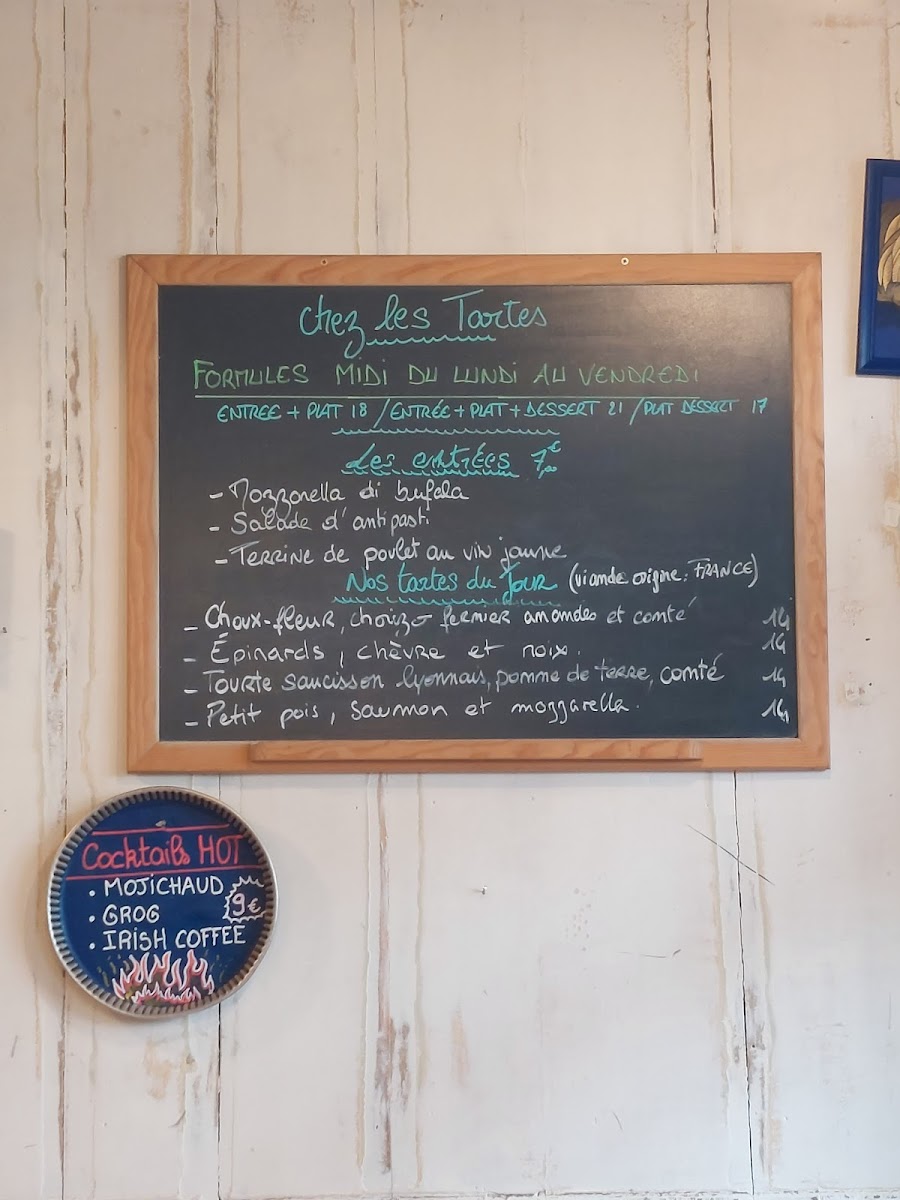 Chez les Tartes
FORMULES MIDI DU LUNDI AU VENDREDI
ENTREE + PLAT 18 / ENTRÉE + PLAT + DESSERT 21 / PLAT DESSERT 17
Les entrées 7€
- Mozzorella di bufala
- Salade d'antipasti
- Terrine de poulet au vin jaune
Nos tartes du Jour (viande origine: FRANCE)
- Choux-fleur, chorizo fermier amandes et comté 14
- Épinards, chèvre et noix. 14
- Tourte saucisson lyonnais, pomme de terre, comté 14
- Petit pois, saumon et mozzarella. 14
Cocktails HOT
• MOJICHAUD
• GROG 9€
• IRISH COFFEE